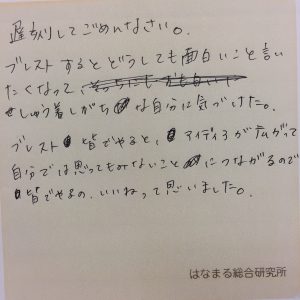 遅刻してごめんなさい。
ブレストするとどうしても面白いこと言い
たくなって、
せしゅう着しがちな自分に気づけた。
ブレスト皆でやると、アイディアが広がって
自分では思ってもみないことにつながるので
皆でやるの、いいねって思いました。
はなまる総合研究所